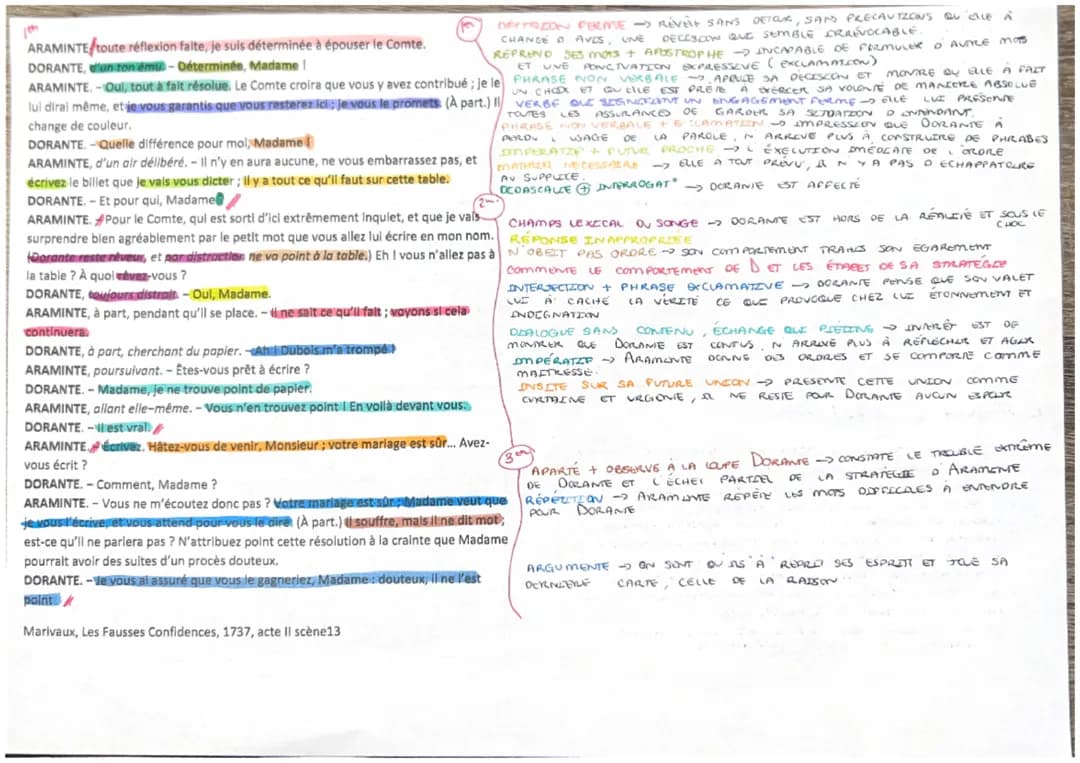 1er
ARAMINTE/toute réflexion faite, je suis déterminée à épouser le Comte.
DORANTE, d'un ton ému. – Déterminée, Madame !
ARAMINTE. – Oui, tout à fait résolue. Le Comte croira que vous y avez contribué ; je le
lui dirai même, et je vous garantis que vous resterez ici ; je vous le promets. (À part.) Il
change de couleur.
DORANTE. – Quelle différence pour moi, Madame !
ARAMINTE, d'un air délibéré. – Il n'y en aura aucune, ne vous embarrassez pas, et
écrivez le billet que je vais vous dicter ; il y a tout ce qu'il faut sur cette table.
DORANTE. – Et pour qui, Madame ?
ARAMINTE. – Pour le Comte, qui est sorti d'ici extrêmement inquiet, et que je vais
surprendre bien agréablement par le petit mot que vous allez lui écrire en mon nom.
(Dorante reste rêveur, et par distraction ne va point à la table.) Eh ! vous n'allez pas à
la table ? À quoi rêvez-vous ?
DORANTE, toujours distrait. – Oui, Madame.
ARAMINTE, à part, pendant qu'il se place. – Il ne sait ce qu'il fait ; voyons si cela
continuera.
DORANTE, à part, cherchant du papier. – Ah ! Dubois m'a trompé !
ARAMINTE, poursuivant. – Êtes-vous prêt à écrire ?
DORANTE. – Madame, je ne trouve point de papier.
ARAMINTE, allant elle-même. – Vous n'en trouvez point ! En voilà devant vous.
DORANTE. – Il est vrai.
ARAMINTE. – Écrivez. Hâtez-vous de venir, Monsieur ; votre mariage est sûr... Avez-
vous écrit ?
DORANTE. – Comment, Madame ?
ARAMINTE. – Vous ne m'écoutez donc pas ? Votre mariage est sûr ; Madame veut que
je vous l'écrive, et vous attend pour vous le dire. (À part.) Il souffre, mais il ne dit mot ;
est-ce qu'il ne parlera pas ? N'attribuez point cette résolution à la crainte que Madame
pourrait avoir des suites d'un procès douteux.
DORANTE. – Je vous ai assuré que vous le gagneriez, Madame : douteux, il ne l'est
point.
Marivaux, Les Fausses Confidences, 1737, acte II scène13
FERME → REVÈIT SANS DETOUR, SANS PRECAUTIONS QU'ELLE A
CHANGE D AVIS, UNE DECISION QUE SEMBLE IRRÉVOCABLE.
REPREND SES MOTS + APOSTROPHE → INCAPABLE DE FORMULER D AUTRE MOTS
ET UNE PONCTUATION EXPRESSIVE (EXCLAMATION)
PHRASE NON VERBALE → SA DECISION ET MONTRE QU ELLE A FAIT
UN CHOIX ET QU ELLE EST PRÊTE A EXERCER SA VOLONTE DE MANIERE ABSOLUE
VERBE QUI SIGNIFIANT UN ENGAGEMENT FERME → ELLE LUI PRESENTE
TOUTES LES ASSURANCES DE GARDER SA SITUATION D INTENDANT.
PHRASE NON VERBALE + EXCLAMATION → IMPRESSION QUE DORANTE A
PERDU L USAGE DE LA PAROLE, N ARRIVE PLUS À CONSTRUIRE DE PHRASES
IMPERATIF + FUTUR PROCHE → L EXECUTION IMÉDIATE DE L ORDRE
MATERIEL NECESSAIRE → ELLE A TOUT PREVU, IL N Y A PAS D ECHAPPATOIRE
AU SUPPLICE.
DIDASCALIE ⊕ INTERROGAT° → DORANTE EST AFFECTÉ
2em
CHAMPS LEXICAL DU SONGE → DORANTE EST HORS DE LA RÉALITÉ ET SOUS LE
CHOC
RÉPONSE INAPPROPRIÉE
N'OBEIT PAS ORDRE → SON COMPORTEMENT TRAHIS SON EGAREMENT
COMMENTE LE COMPORTEMENT DE D ET LES ÉTAPES DE SA STRATÉGIE
INTERJECTION + PHRASE EXCLAMATIVE → DORANTE PENSE QUE SON VALET
LUI A CACHÉ LA VÉRITÉ CE QUI PROVOQUE CHEZ LUI ÉTONNEMENT ET
INDIGNATION
DIALOGUE SANS CONTENU, ÉCHANGE QUI PIETINE → INTERÊT EST DE
MONTRER QUE DORANTE EST CONFUS, N ARRIVE PLUS À RÉFLECHIR ET AGIR
IMPÉRATIF → ARAMINTE DONNE DES ORDRES ET SE COMPORTE COMME
MAITRESSE.
INSITE SUR SA FUTURE UNION → PRESENTE CETTE UNION COMME
CERTAINE ET URGENTE, IL NE RESTE POUR DORANTE AUCUN ESPOIR
3em
APARTÉ + OBSERVE À LA LOUPE DORANTE → CONSTATE LE TROUBLE EXTRÊME
DE DORANTE ET L'ÉCHEC PARTIEL DE LA STRATÉGIE D ARAMINTE
RÉPÉTITION → ARAMINTE RÉPÈTE LES MOTS DIFFICILES À ENTENDRE
POUR DORANTE
ARGUMENTE → ON SENT QU IL A REPRIS SES ESPRIT ET JOUE SA
DERNIERE CARTE, CELLE DE LA RAISON